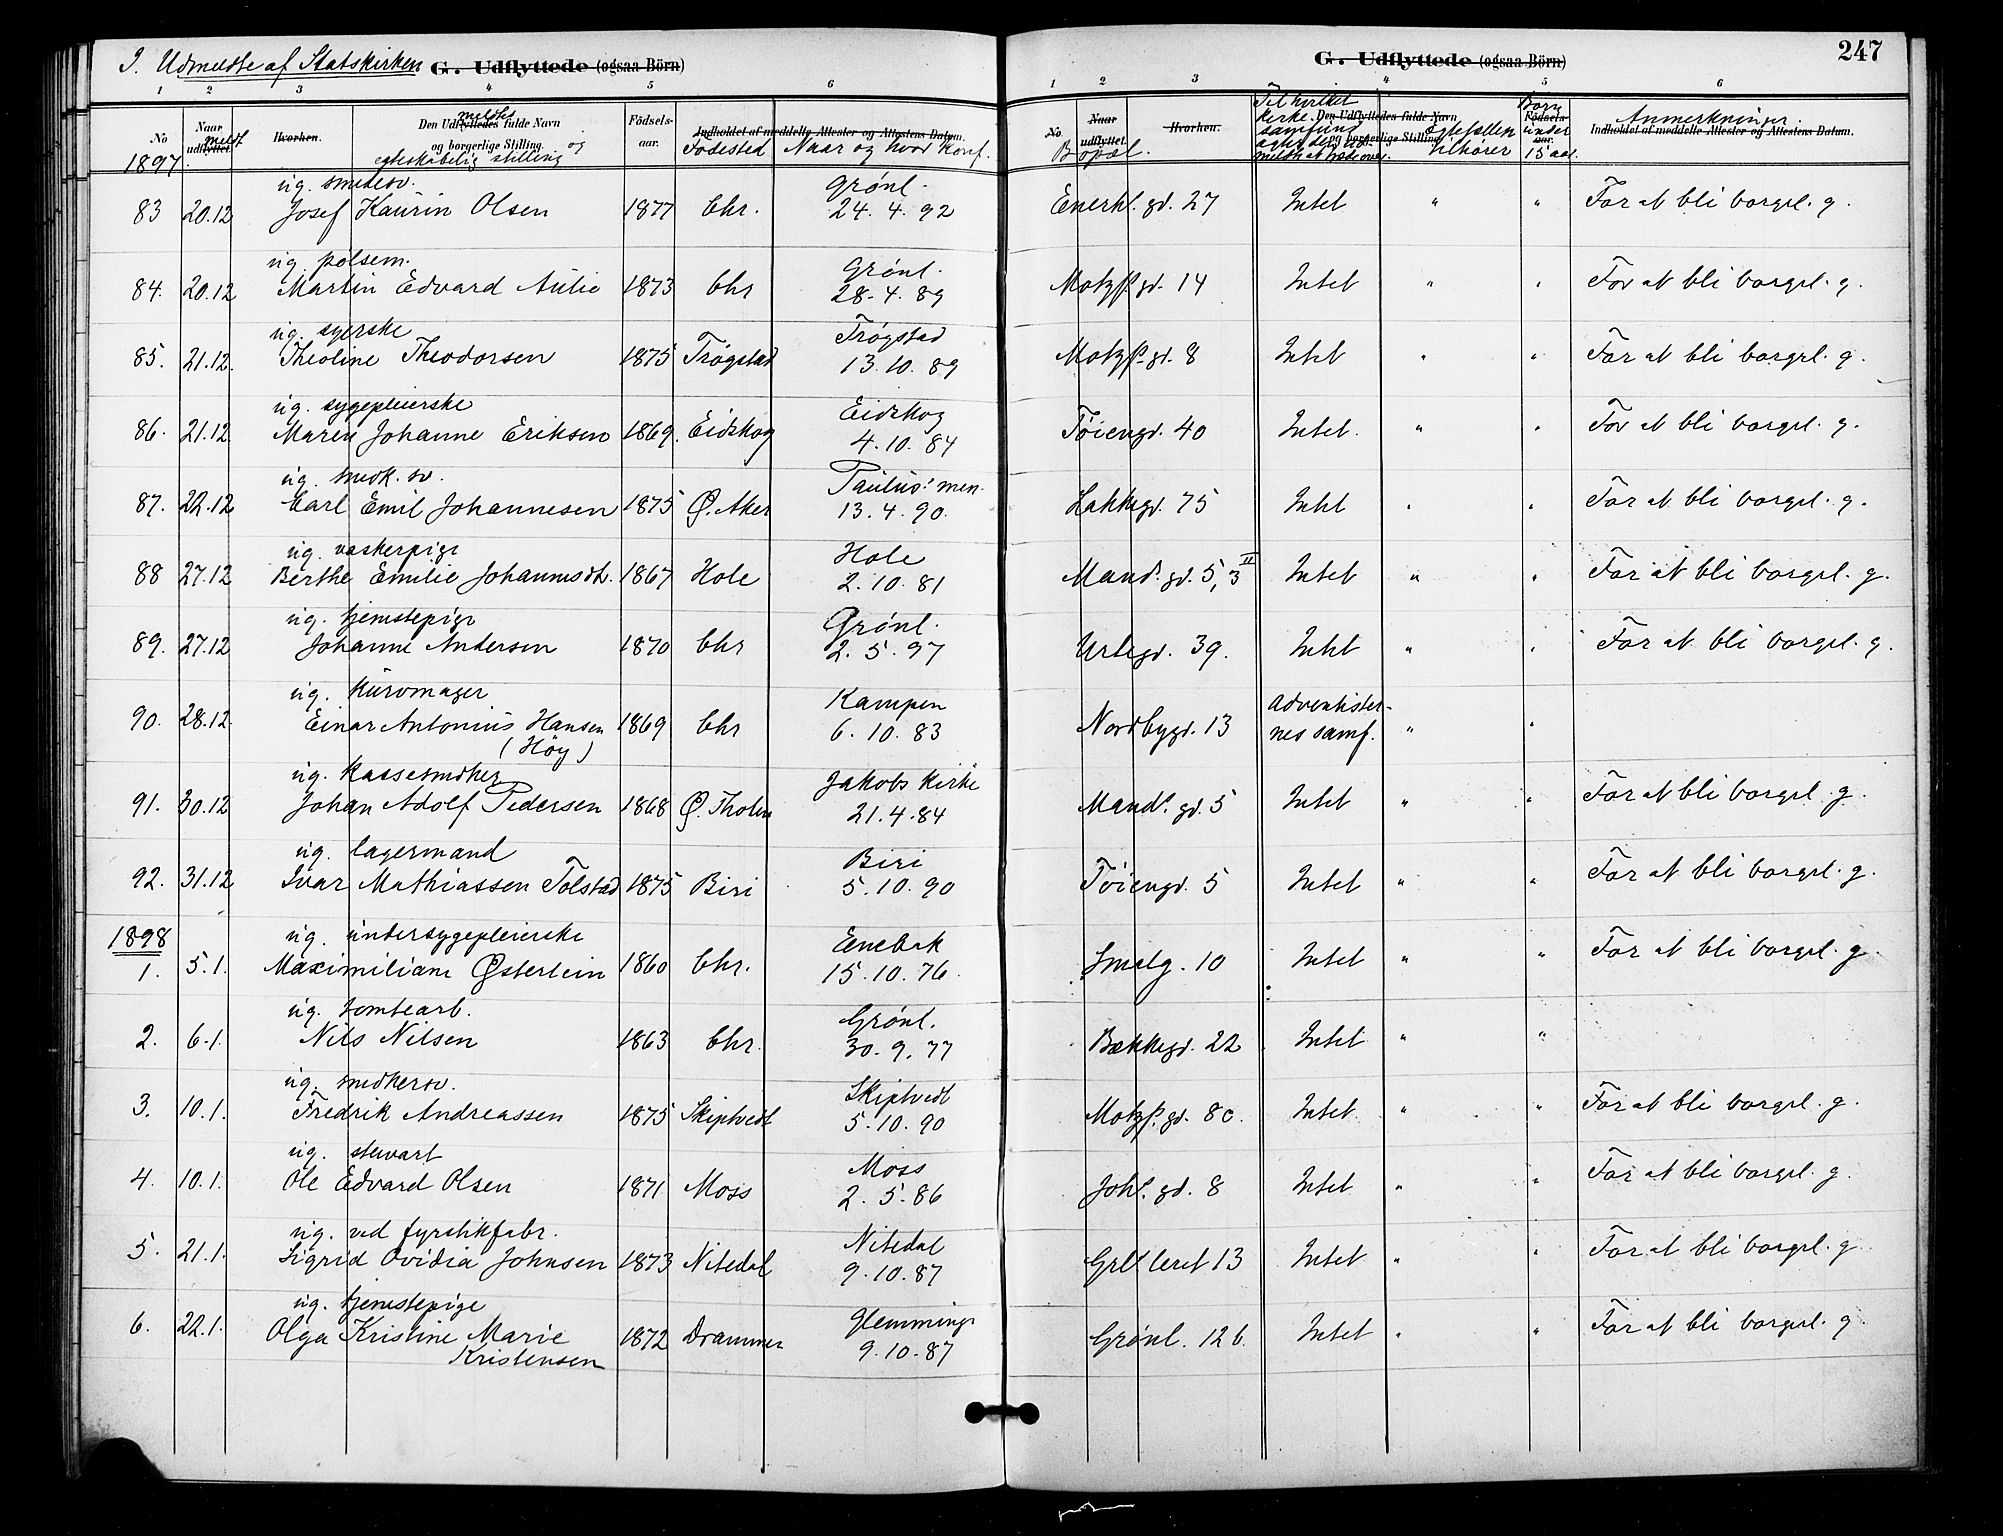 I. Udmeldte af Statskirken G. Udflyttede (ogsaa Börn)
1 2 3 4 5 6
No Naar udflyttet. meldt Hvorhen. Den Udflyttedes fulde Navn og borgerlige Stilling. meldtes og egteskabelig stilling Födsels-aar. Indholdet af meddelte Attester og Attestens Datum. Födested Naar og hvor konf.
1897
ug. smedesv. Grönl.
83 20.12 Josef Kaurin Olsen 1877 Chr. 24.4.92
ug. pölsem. Grönl.
84. 20.12 Martin Edvard Aulie 1873 Chr 28.4.89
ug. syerske Trögstad
85. 21.12. Theoline Theodorsen 1875 Trögstad 13.10.89
ug. sygepleierske Eidskog
86. 21.12 Maren Johanne Eriksen 1869. Eidskog 4.10.84
ug. snedk. sv. Paulus' men.
87. 22.12 Carl Emil Johannesen 1875 Ø. Aker 13.4.90.
ug. vaskerpige Hole
88 27.12 Berthe Emilie Johannsdt. 1867 Hole 2.10.81
ug. tjenestepige Grönl.
89. 27.12 Johanne Andersen 1870 Chr 2.5.97
ug. kurvmager Kampen
90. 28.12. Einar Antonius Hansen 1869 Chr 6.10.83
(Höy)
ug. kassesnedker Jakobs kirke
91. 30.12 Johan Adolf Pedersen 1868 Ø. Tholen 21.4.84
ug. lagermand Biri
92. 31.12 Ivar Mathiassen Tolstad 1875 Biri 5.10.90
1898 ug. undersygepleierske Enebak
1. 5.1. Maximiliane Østerlein 1860 Chr. 15.10.76.
ug. tomtearb. Grönl.
2. 6.1. Nils Nilsen 1863 Chr. 30.9.77
ug. snedkersv. Skiptvedt
3. 10.1. Fredrik Andreassen 1875 Skiptvedt 5.10.90
ug. stewart Moss
4. 10.1. Ole Edvard Olsen 1871 Moss 2.5.86
ug. ved fyrstikfabr. Nitedal
5. 21.1. Sigrid Ovidia Johnsen 1873 Nitedal 9.10.87
ug. tjenestepige Glemminge
6. 22.1. Olga Kristine Marie 1872 Drammen 9.10.87
Kristensen
G. Udflyttede (ogsaa Börn) 247
1 2 3 4 5 6
No. Naar udflyttet. Bopæl. Hvorhen. Den Udflyttedes fulde Navn og borgerlige Stilling. Til hvilket kirkesamfund Egtefællen tilhörer Födsels-aar. Born under 15 aar. Anmerkninger. Indholdet af meddelte Attester og Attestens Datum.
Enerh. gd. 27 Intet " " For at bli borgrl. g.
Motzf. gd. 14 Intet " " For at bli borgrl. g.
Motzf. gd. 8 Intet " " For at bli borgrl. g.
Töiengd. 40 Intet. " " For at bli borgrl. g.
Lakkegd. 75 Intet " " For at bli borgrl. g.
Mand. gd. 5, 3 II Intet " " For at bli borgrl. g.
Urtegd. 39. Intet " " For at bli borgrl. g.
Nordbygd. 13 Adventister-nes samf. " "
Mand. gd. 5 Intet " " For at bli borgrl. g.
Töiengd. 5 Intet " " For at bli borgrl. g.
Smalg. 10 Intet " " For at bli borgrl. g.
Bækkegd. 22 Intet " "
Motzf. gd. 80. Intet " " For at bli borgrl. g.
Joh. gd. 8 Intet " " For at bli borgrl. g.
Grl. leret 13 Intet " " For at bli borgrl. g
Grönl. 12 b. Intet " " For at bli borgrl. g